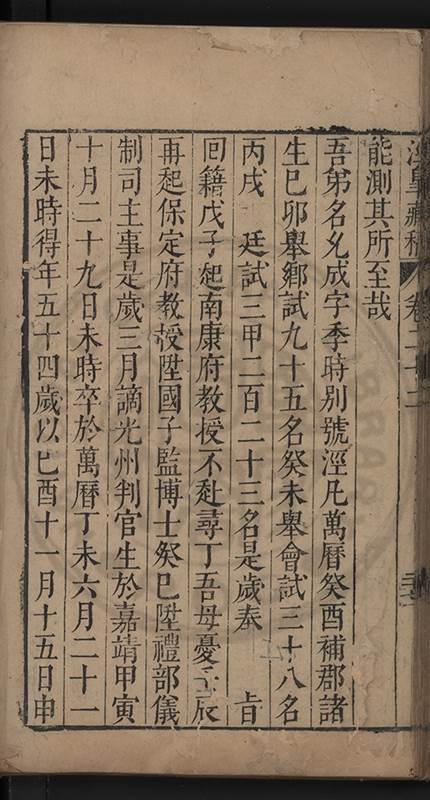 涇臯藏稿 卷二十二
能測其所至哉
吾弟名允成字季時別號涇凡萬曆癸酉補郡諸
生巳卯舉鄉試九十五名癸未舉會試三十八名
丙戌 廷試三甲二百二十三名是歲奉 旨
囘籍戊子起南康府教授不赴尋丁吾母憂壬辰
再起保定府教授陞國子監博士癸巳陞禮部儀
制司主事是歲三月謫光州判官生於嘉靖甲寅
十月二十九日未時卒於萬曆丁未六月二十一
日未時得年五十四歲以巳酉十一月十五日申